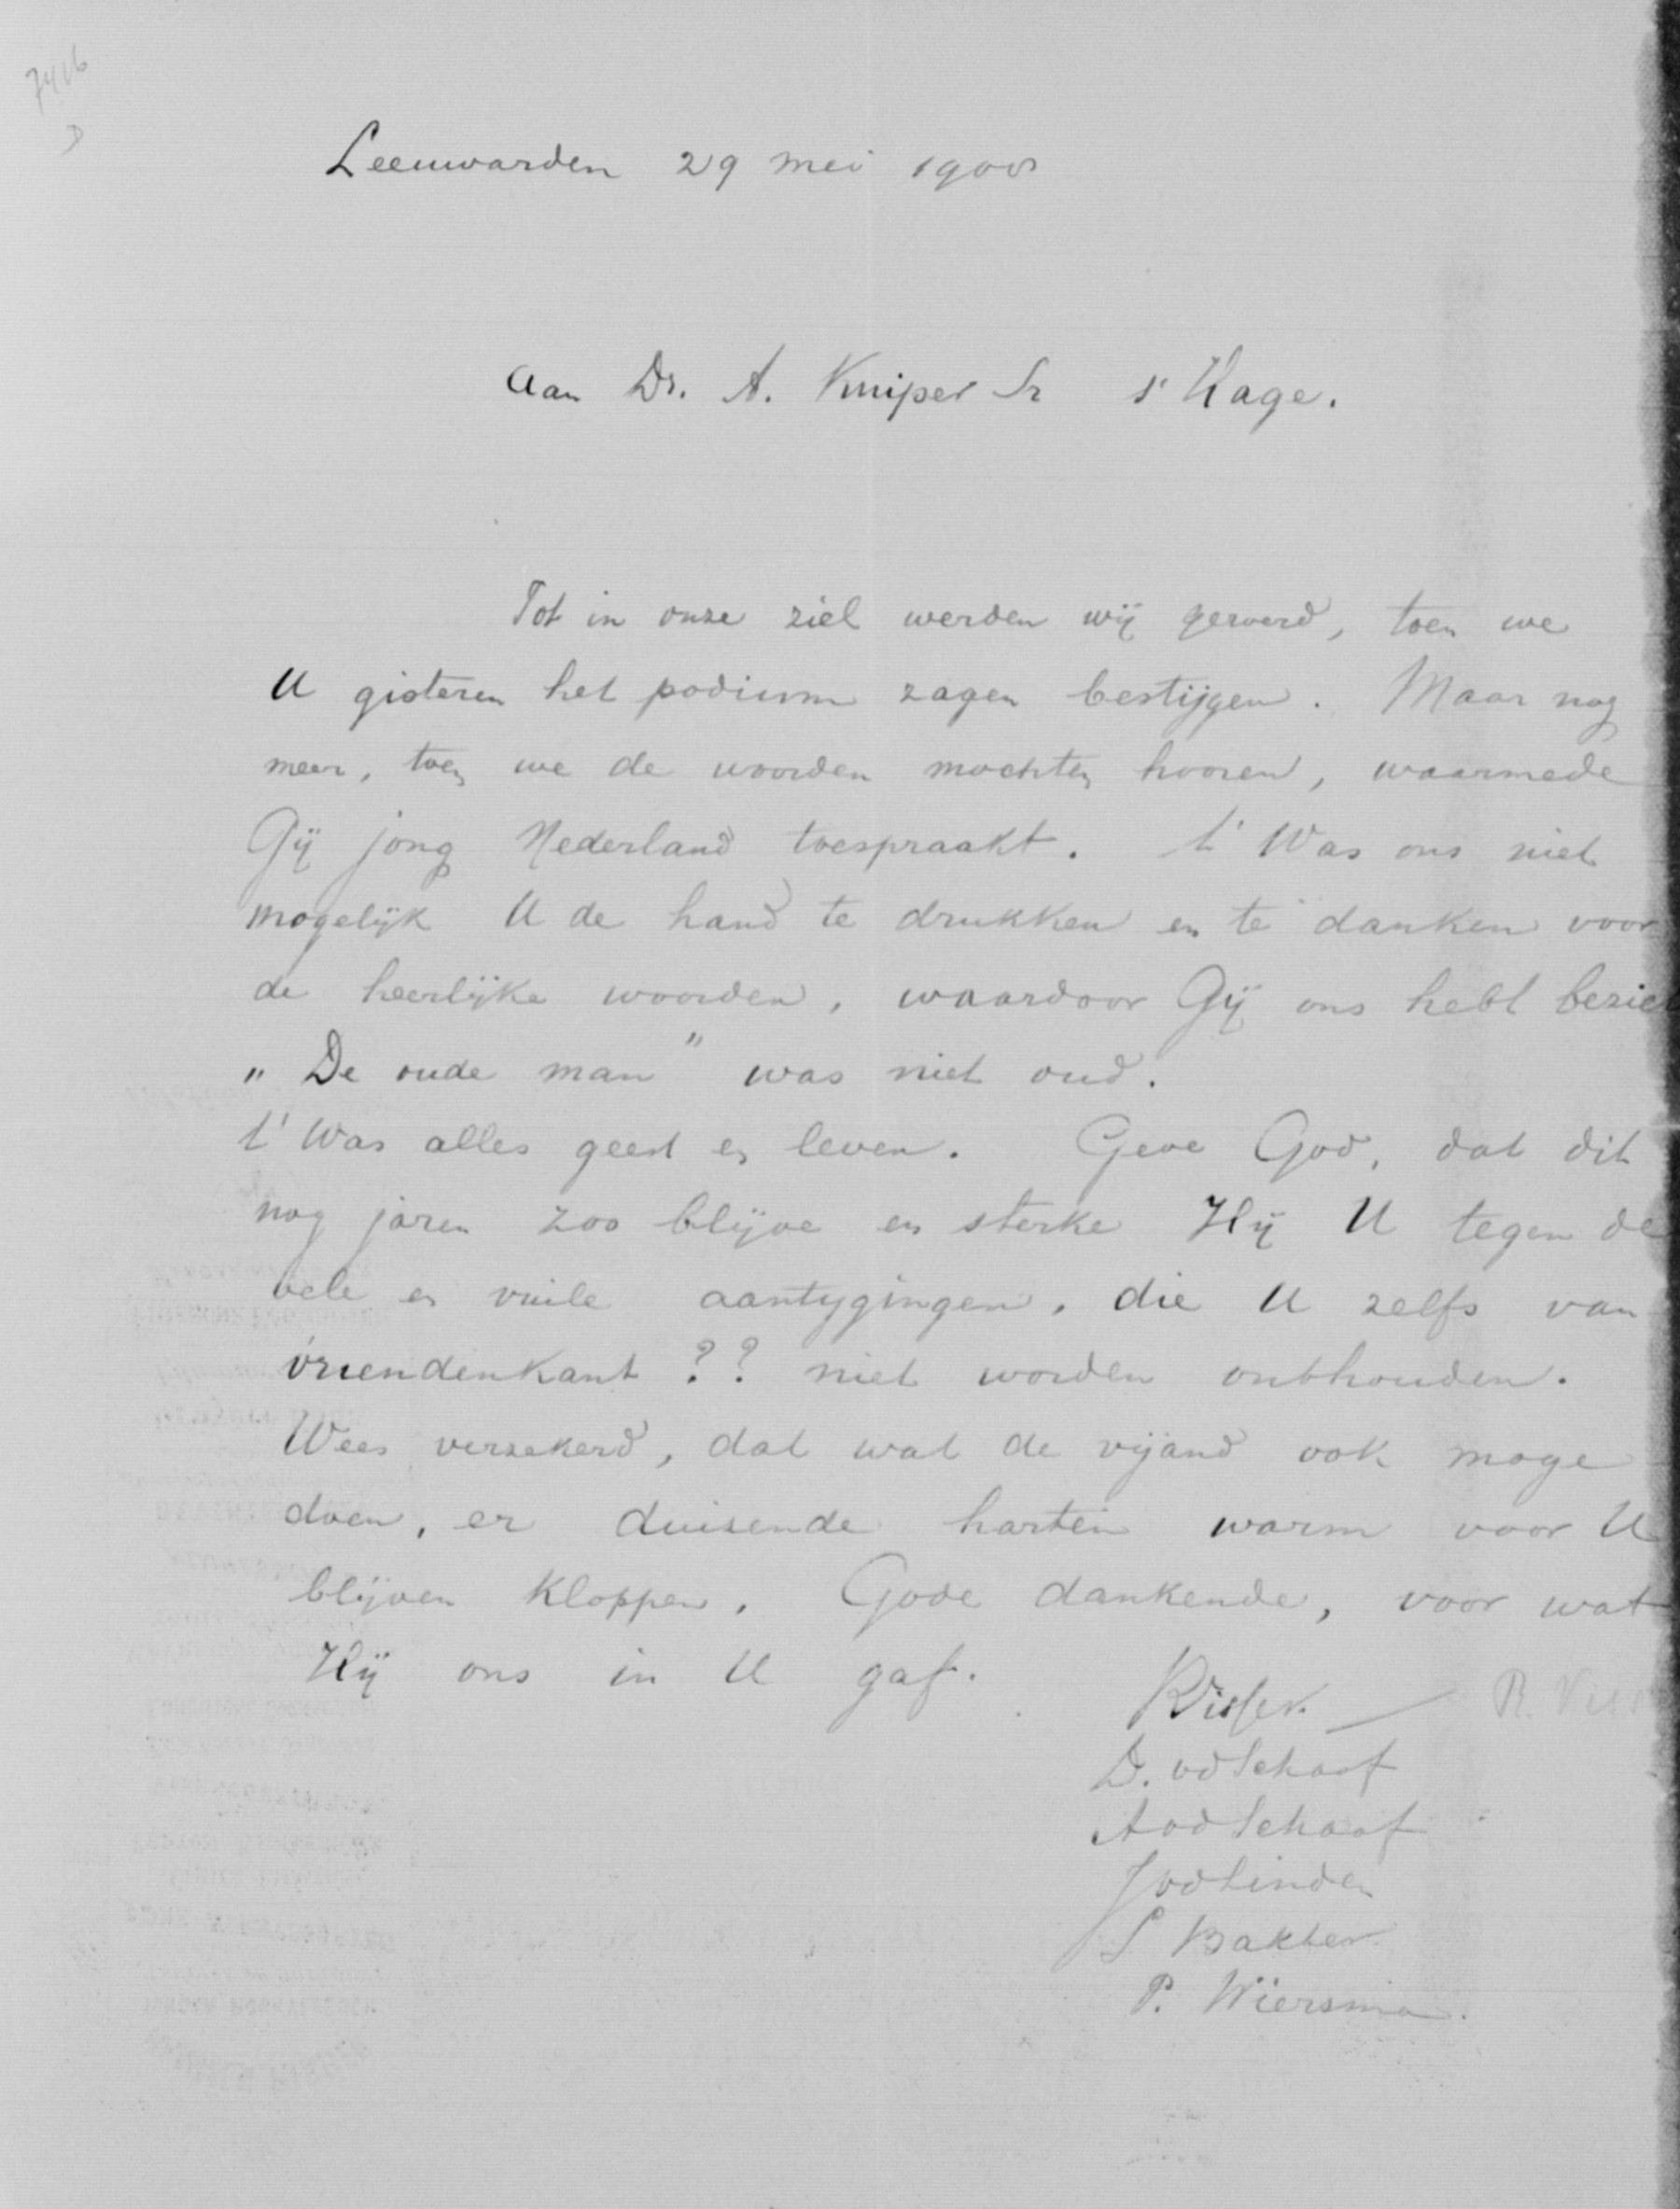 7416
D
Leeuwarden 29 mei 1908
Aan Dr. A. Kuiper Sr s' Hage.
Tot in onze ziel werden wij geroerd, toen we
U gisteren het podium zagen bestijgen. Maar nog
meer, toen we de woorden mochten hooren, waarmede
Gij jong Nederland toespraakt. t' Was ons niet
mogelijk U de hand te drukken en te danken voor
de heerlijke woorden, waardoor Gij ons hebt bezie
„ De oude man " was niet oud.
t' Was alles geest en leven. Geve God, dat dit
nog jaren zoo blijve en sterke Hij U tegen de
vele en vuile aantygingen, die U zelfs van
vriendenkant ?? niet worden onthouden.
Wees verzekerd, dat wat de vijand ook moge
doen, er duizende harten warm voor U
blijven kloppen, Gode dankende, voor wat
Hij ons in U gaf.
RVisser. — R. Viss
D. vd Schaaf
A vd Schaaf
J vd Linden
S Bakker
P. Wiersma.